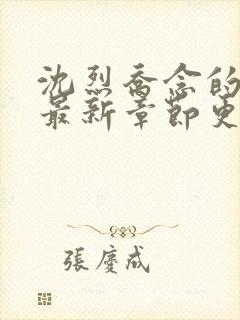 沈烈喬念的
最新章節更
張慶成